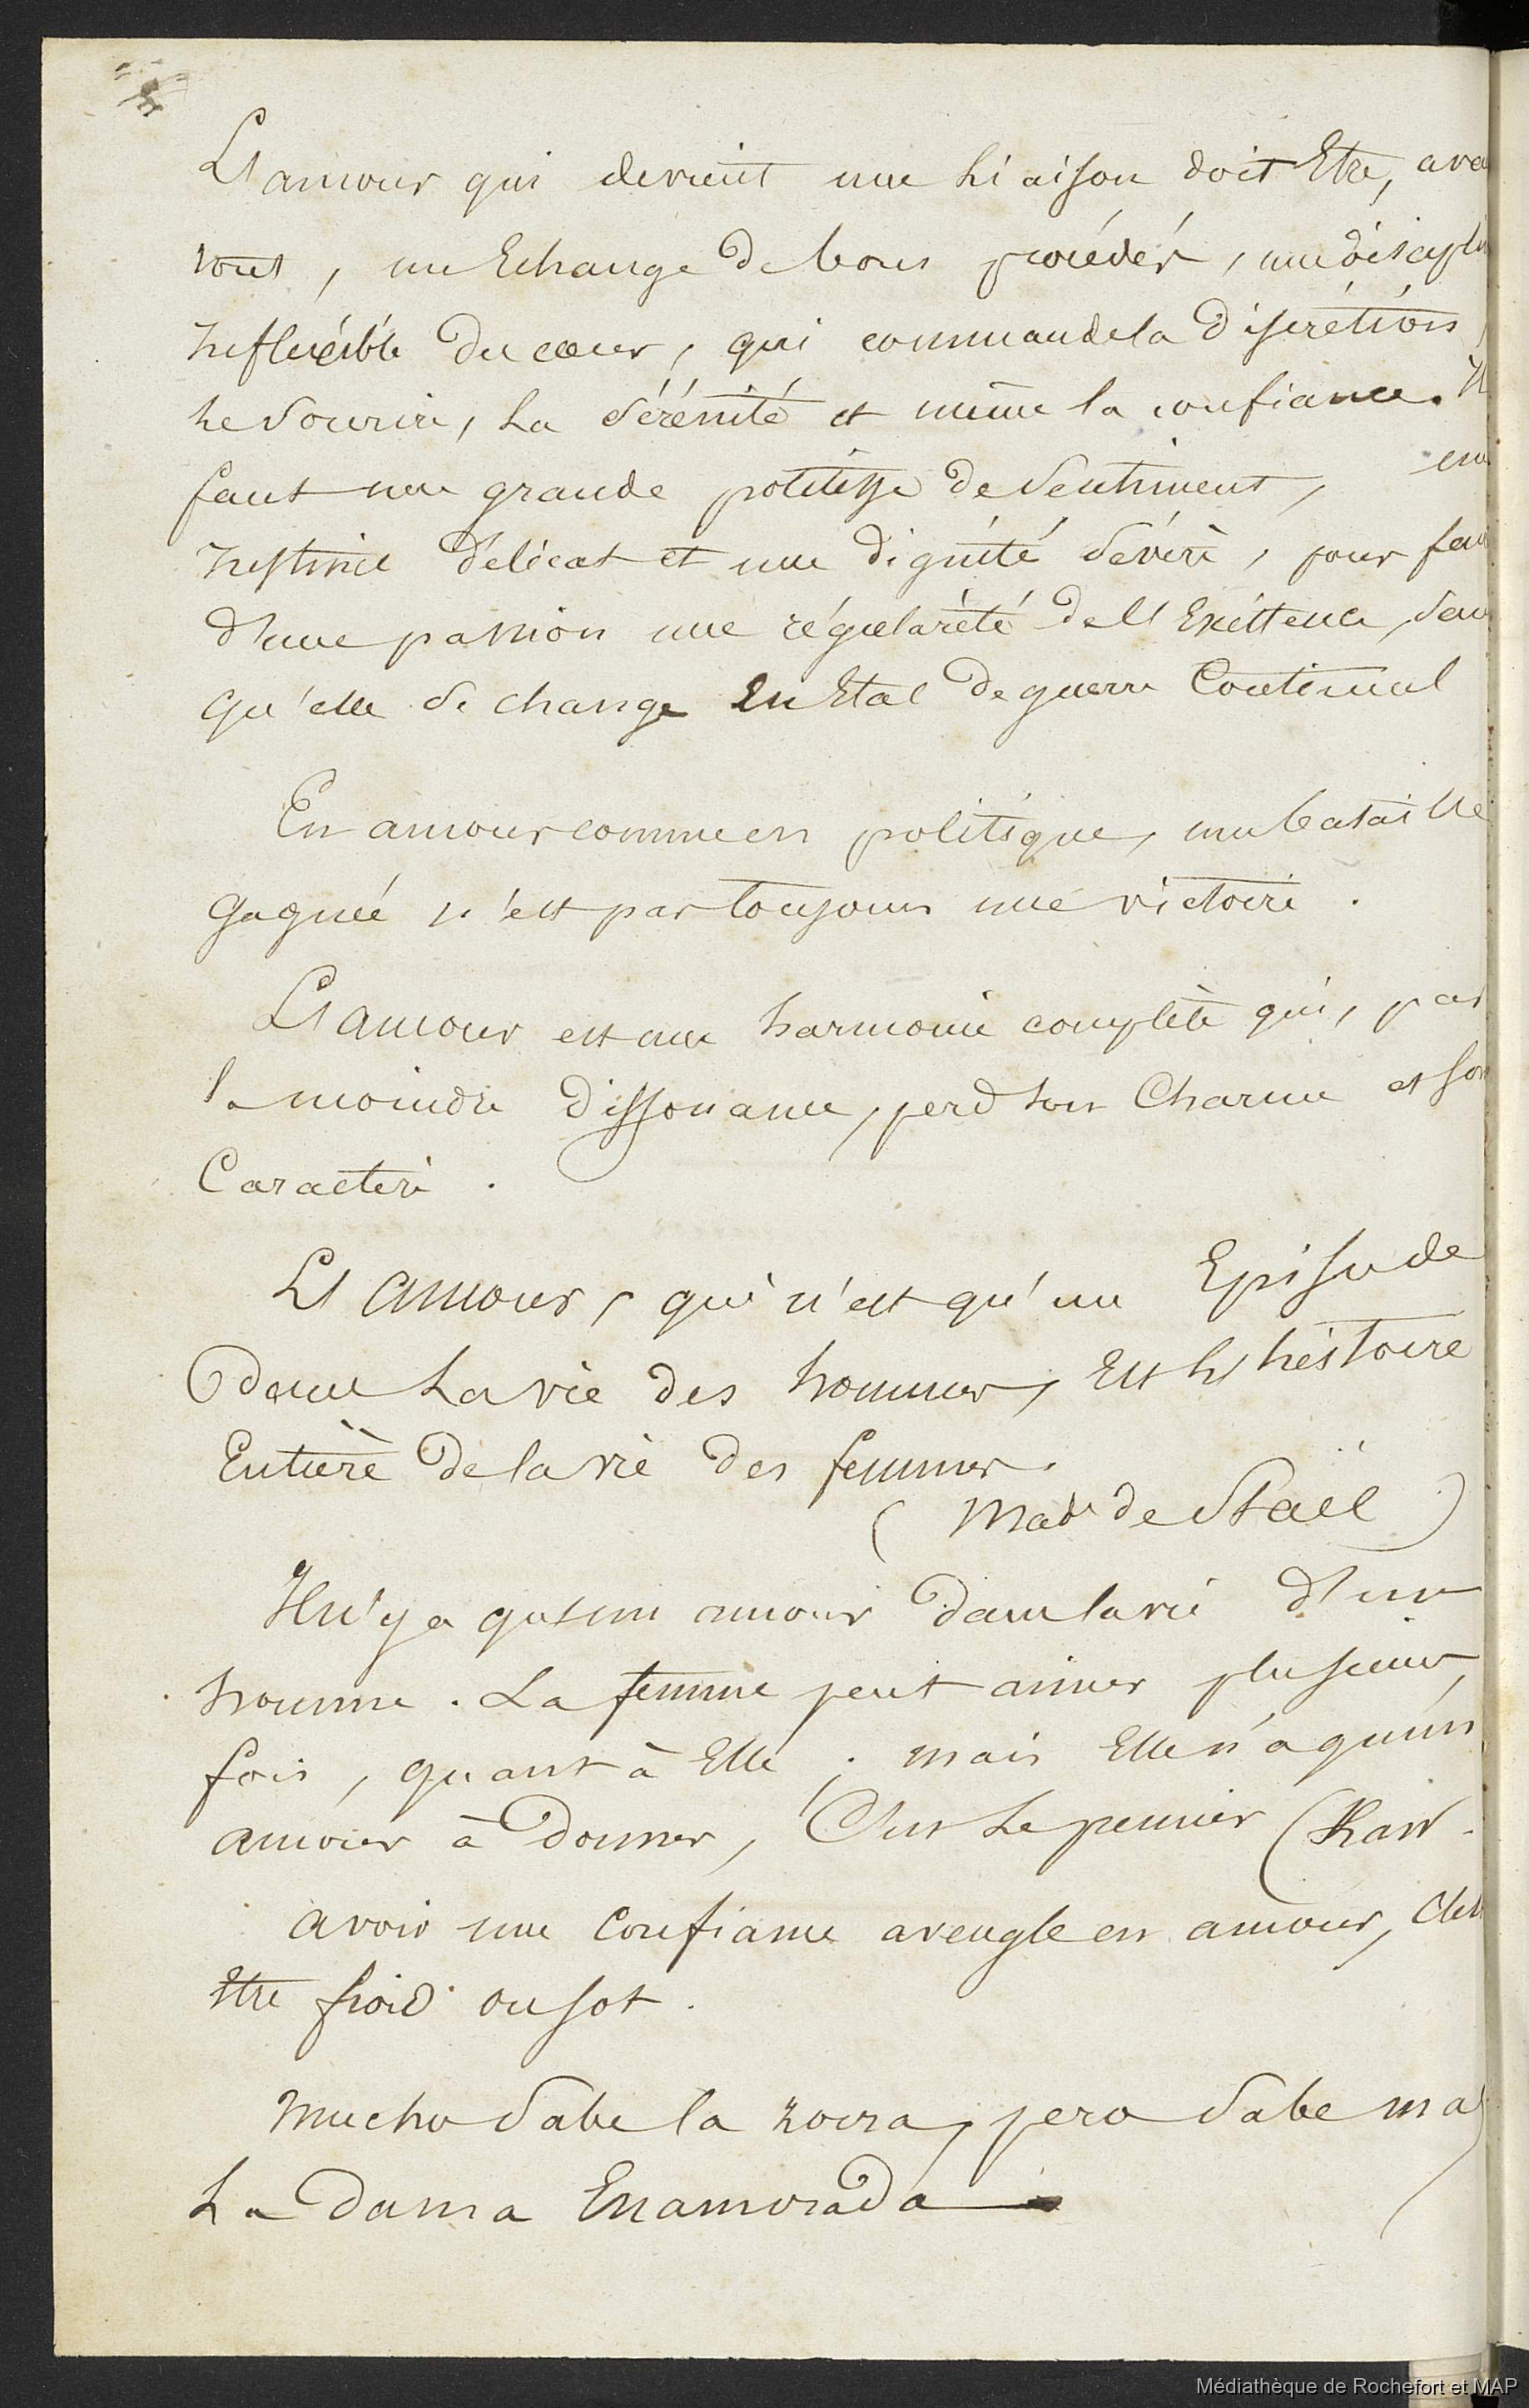 L'amour qui devient une liaison doit Etre, ava
tout, un Echange de bons procédés, une discipli
inflexible du cœur, qui commande la discrétion,
le sourire, la sérénité et même la confiance. Il
faut une grande politesse de sentiment, un
instinct délicat et une dignité sévère, pour fai
d'une passion une régularité de l'Existence, san
qu'elle se change En Etat de guerre Continuel
En amour comme en politique, une bataille
gagnée n'est pas toujours une victoire.
L'amour est une harmonie complète qui, par
la moindre dissonance, perd son Charme et son
Caractère.
L'amour, qui n'est qu'un Episode
dans la vie des hommes, Est l'histoire
Entière de la vie des femmes.
(Mad. de Staël)
Il n'y a qu'un amour dans la vie d'un
homme. La femme peut aimer plusieurs
fois, quant à Elle; mais Elle n'a qu'un
amour à donner, C'est le premier (Karr.
avoir une Confiance aveugle en amour, C'est
Etre froid ou sot.
Mucho sabe la zorra, pero sabe mas
La Dama Enamorada
Médiathèque de Rochefort et MAP